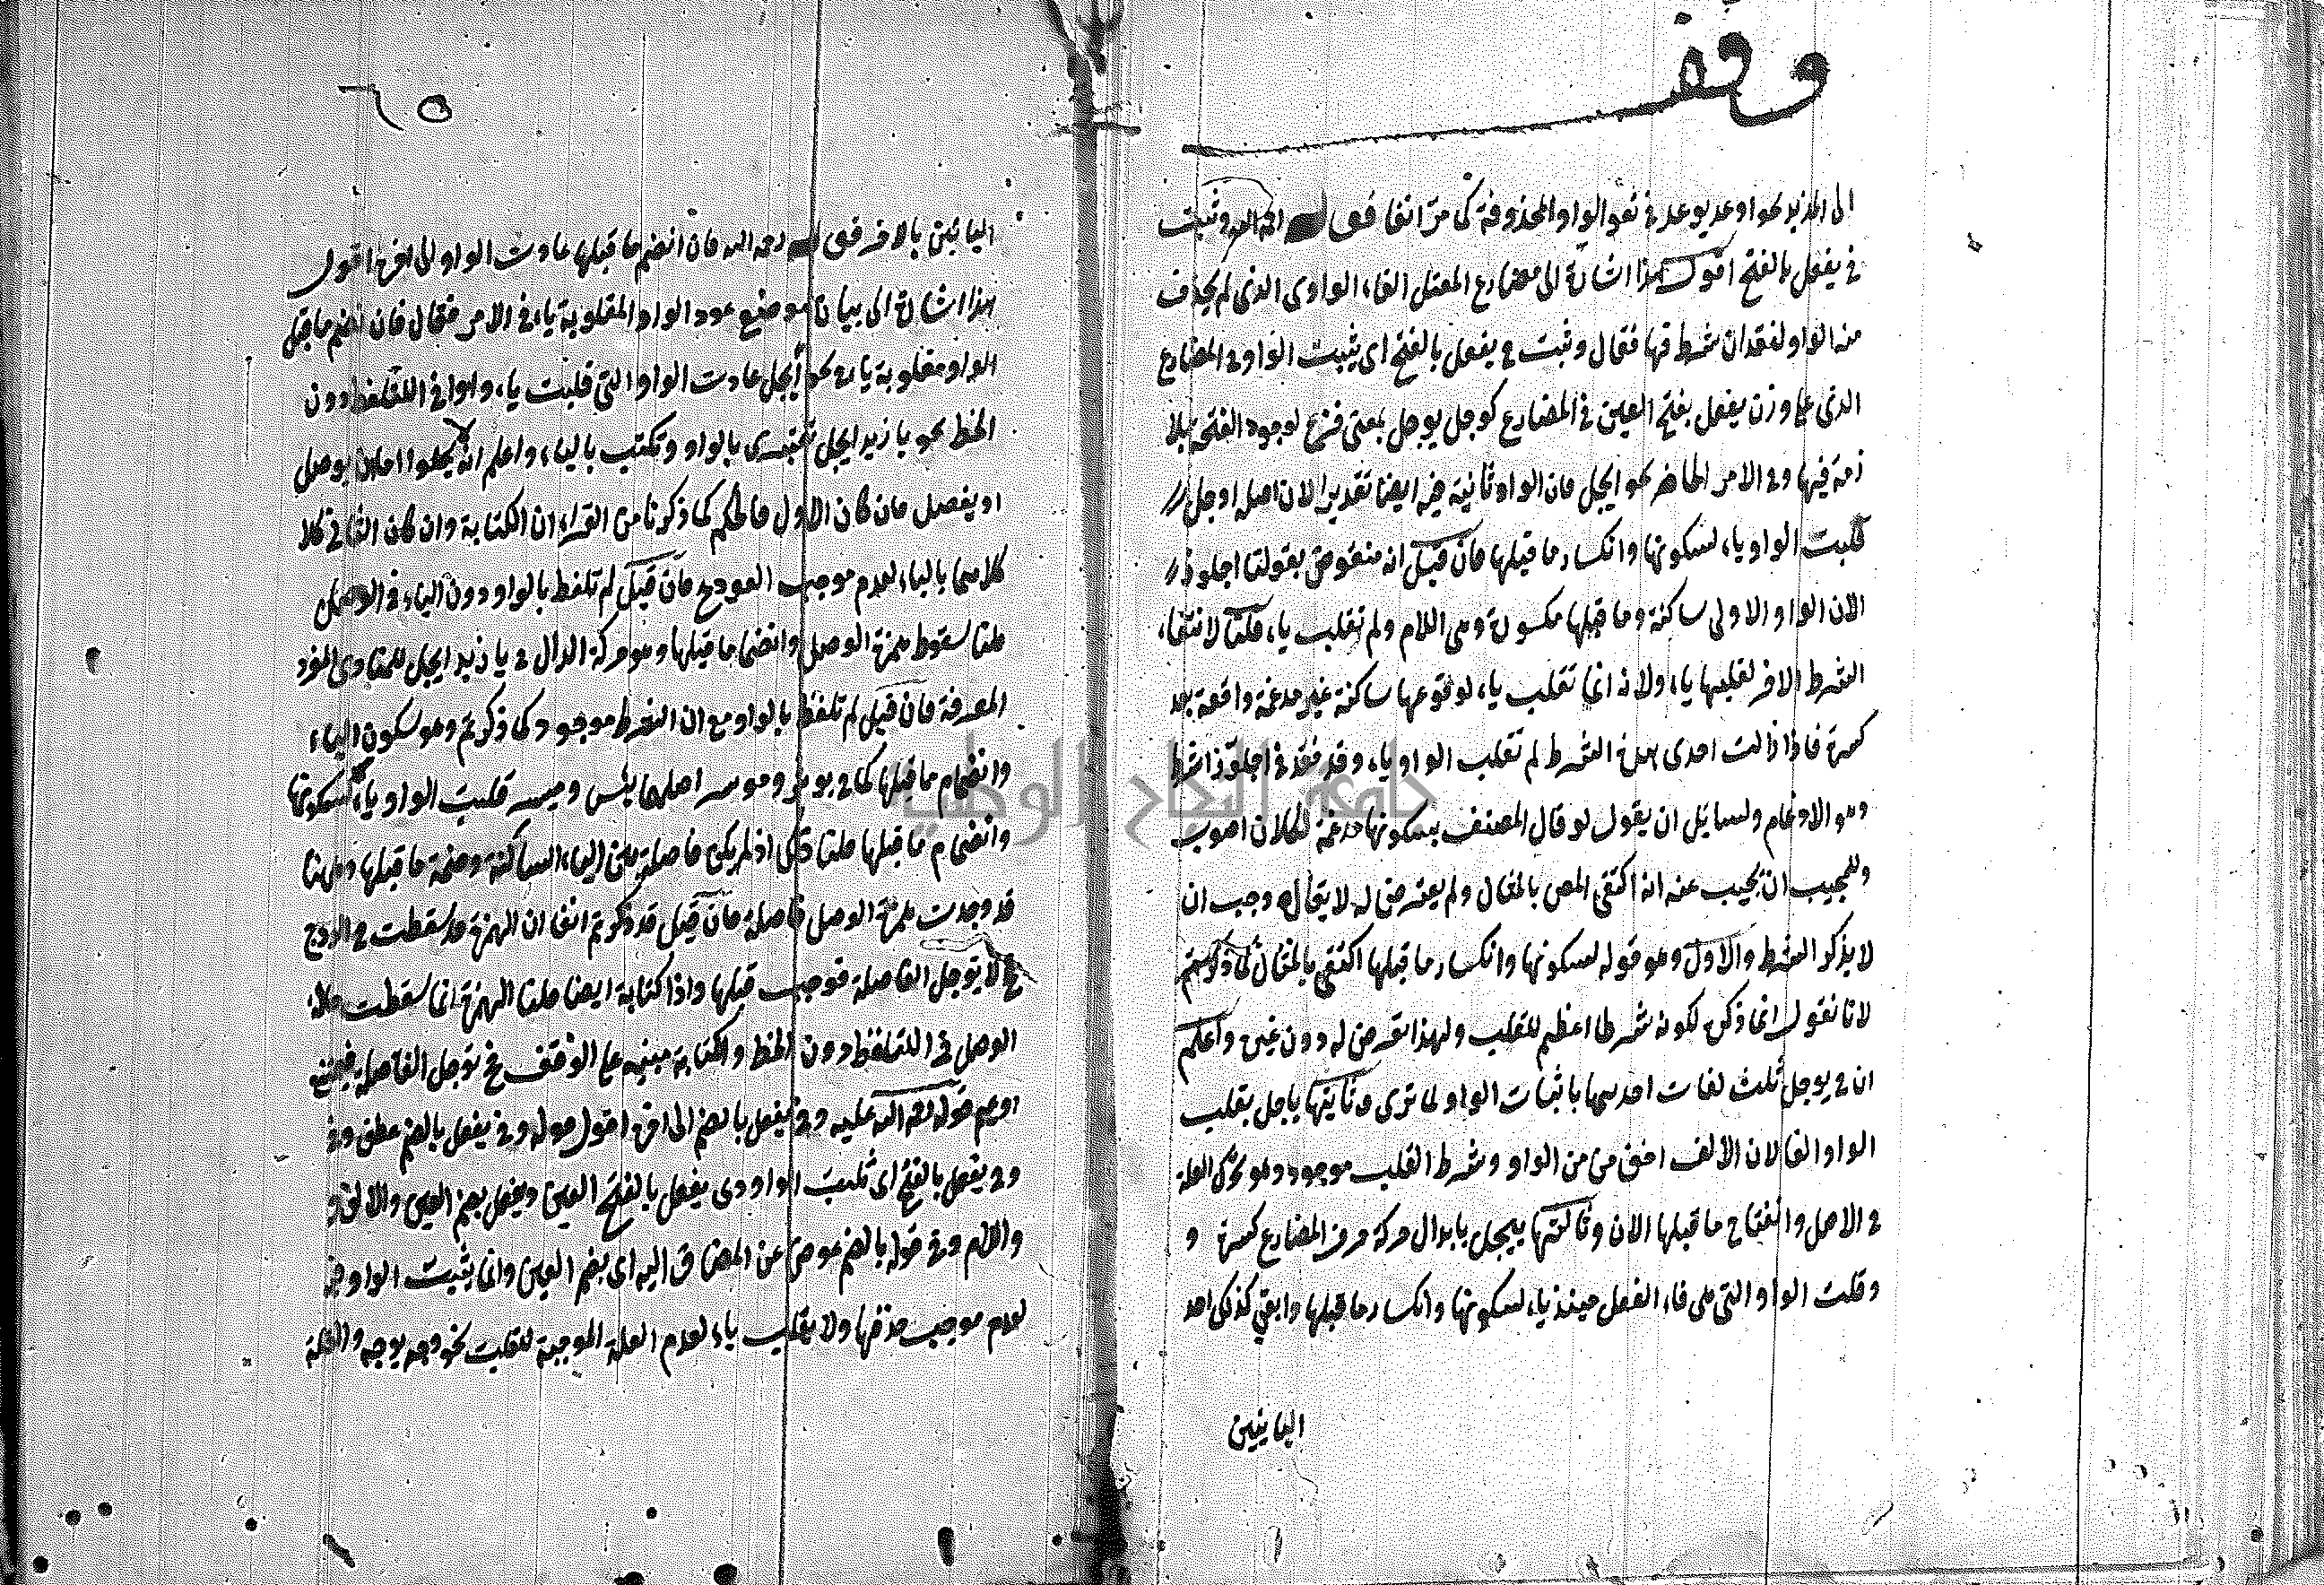 وقف
الى المزيد نحو اوعد يوعد فتعود الواو المحذوفة كما مرّ انفا قوله رحمه الله وثبت
في يفعل بالفتح اقول هذا اشارة الى مضارع المعتل الفاء الواوى الذى لم يحذف
منه الواو لفقدان شرطها فقال وثبت في يفعل بالفتح اى يثبت الواو في المضارع
الذى على وزن يفعل بفتح العين في المضارع كوجل يوجل بمعنى فزع لوجود الفتحة بلا
زمة فيها وفي الامر الحاضر نحو ايجل فان الواو ثابتة فيه ايضا تقديرا لان اصله اوجل
قلبت الواو ياء لسكونها وانكسار ما قبلها فان قيل انه منقوض بقولنا اجلوذ
الان الواو الاولى ساكنة وما قبلها مكسورة وهى اللام ولم تقلب ياء قلنا لانتفاء
الشرط الاخر لقلبها ياء ولانه انما تقلب ياء لوقوعها ساكنة غير مدغمة واقعة بعد
كسرة فاذا زالت احدى هذه الشرط لم تقلب الواو ياء وقد فقد في اجلوّذ الشرط
وهو الادغام ولسائل ان يقول لو قال المصنف بسكونها مدغمة لكان اصوب
وللمجيب ان يجيب عنه انه اكتفى المص بالمثال ولم يتعرض له لا يقال وجب ان
لا يذكر الشرط والاول وهو قوله لسكونها وانكسار ما قبلها اكتفى بالمثال كما ذكرتم
لانا نقول انما ذكره لكونه شرطا اعظم للقلب ولهذا تعرض له دون غيره واعلم
ان في يوجل ثلث لغات احديها باثبات الواو كما ترى وثانيتها ياجل بقلب
الواو الفا لان الألف اخف من الواو وشرط القلب موجود وهو تحرك العلة
في الاصل وانفتاح ما قبلها الان وثالثتها ييجل بابدال حركة حرف المضارع كسرة و
وقلبت الواو التى هى فاء الفعل حينئذ ياء لسكونها وانكسار ما قبلها وابقي كذلك احد
اليائين
٦٥
اليائين بالاخر قوله رحمه الله فان انضم ما قبلها عادت الواو الى اخره اقول
هذا اشارة الى بيان موضع عود الواو المقلوبة ياء في الامر فقال فان انضم ما قبل
الواو مقلوبة ياء نحو أيجل عادت الواو التى قلبت ياء واوا في اللتلفظ دون
الخط نحو يا زيد ايجل تقرى بالواو وتكتب بالياء واعلم انه يخلوا اما ان يوصل
او يفصل فان كان الاول فالحكم كما ذكرنا من القراءة ان الكتابة وان كان الثانى فكلا
كلاهما بالياء لعدم موجب العود ح فان قيل لم تلفظ بالواو دون الياء في الوصل
قلنا سقوط همزة الوصل وانضم ما قبلها وهو حركة الدال في يا زيد ايجل للمنادى المفرد
المعرفة فان قيل لم تلفظ بالواو مع ان الشرط موجود كما ذكرتم وهو سكون الياء
وانضمام ما قبلها كما في يوسر وموسر اصلهما ييسر وميسر قلبت الواو ياء لسكونها
وانضمام ما قبلها قلنا ذلك اذا لم يكن فاصلة بين الياء الساكنة وضمة ما قبلها وههنا
قد وجدت همزة الوصل فاصلة فان قيل قد ذكرتم انفا ان الهمزة قد سقطت في الدرج
فح لا يوجل الفاصلة فوجب قبلها واذا كتابة ايضا قلنا الهمزة انما سقطت حالة
الوصل في اللتلفظ دون الخط والكتابة مبنية على الوقف فح توجل الفاصلة فيمتنع
قوله رحمة الله عليه وفي يفعل بالضم الى اخره اقول قوله وفي يفعل بالضم عطف على
وفي يفعل بالفتح اى ثبت الواو في يفعل بالفتح العين ويفعل بضم العين والالف و
واللام وفي قوله بالضم عوض عن المضاف اليه اى بضم العين وانما يثبت الواو فيه
لعدم موجب حذفها ولا يقلب ياء لعدم العلة الموجبة للقلب نحو وجه يوجه والعلة